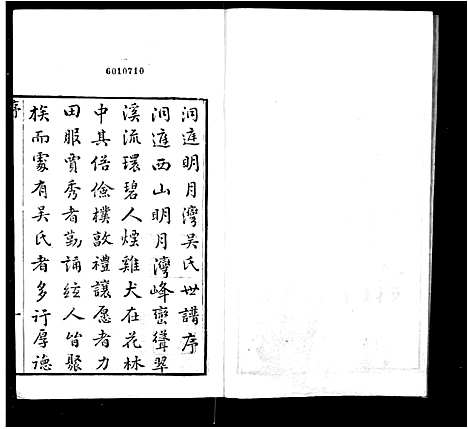 6010710
洞庭明月灣吳氏世譜序
洞庭西山明月灣峰巒聳翠
溪流環碧人煙雞犬在花林
中其俗儉樸敦禮讓愿者力
田服賈秀者勤誦絃人皆聚
族而處有吳氏者多行厚德
序
一